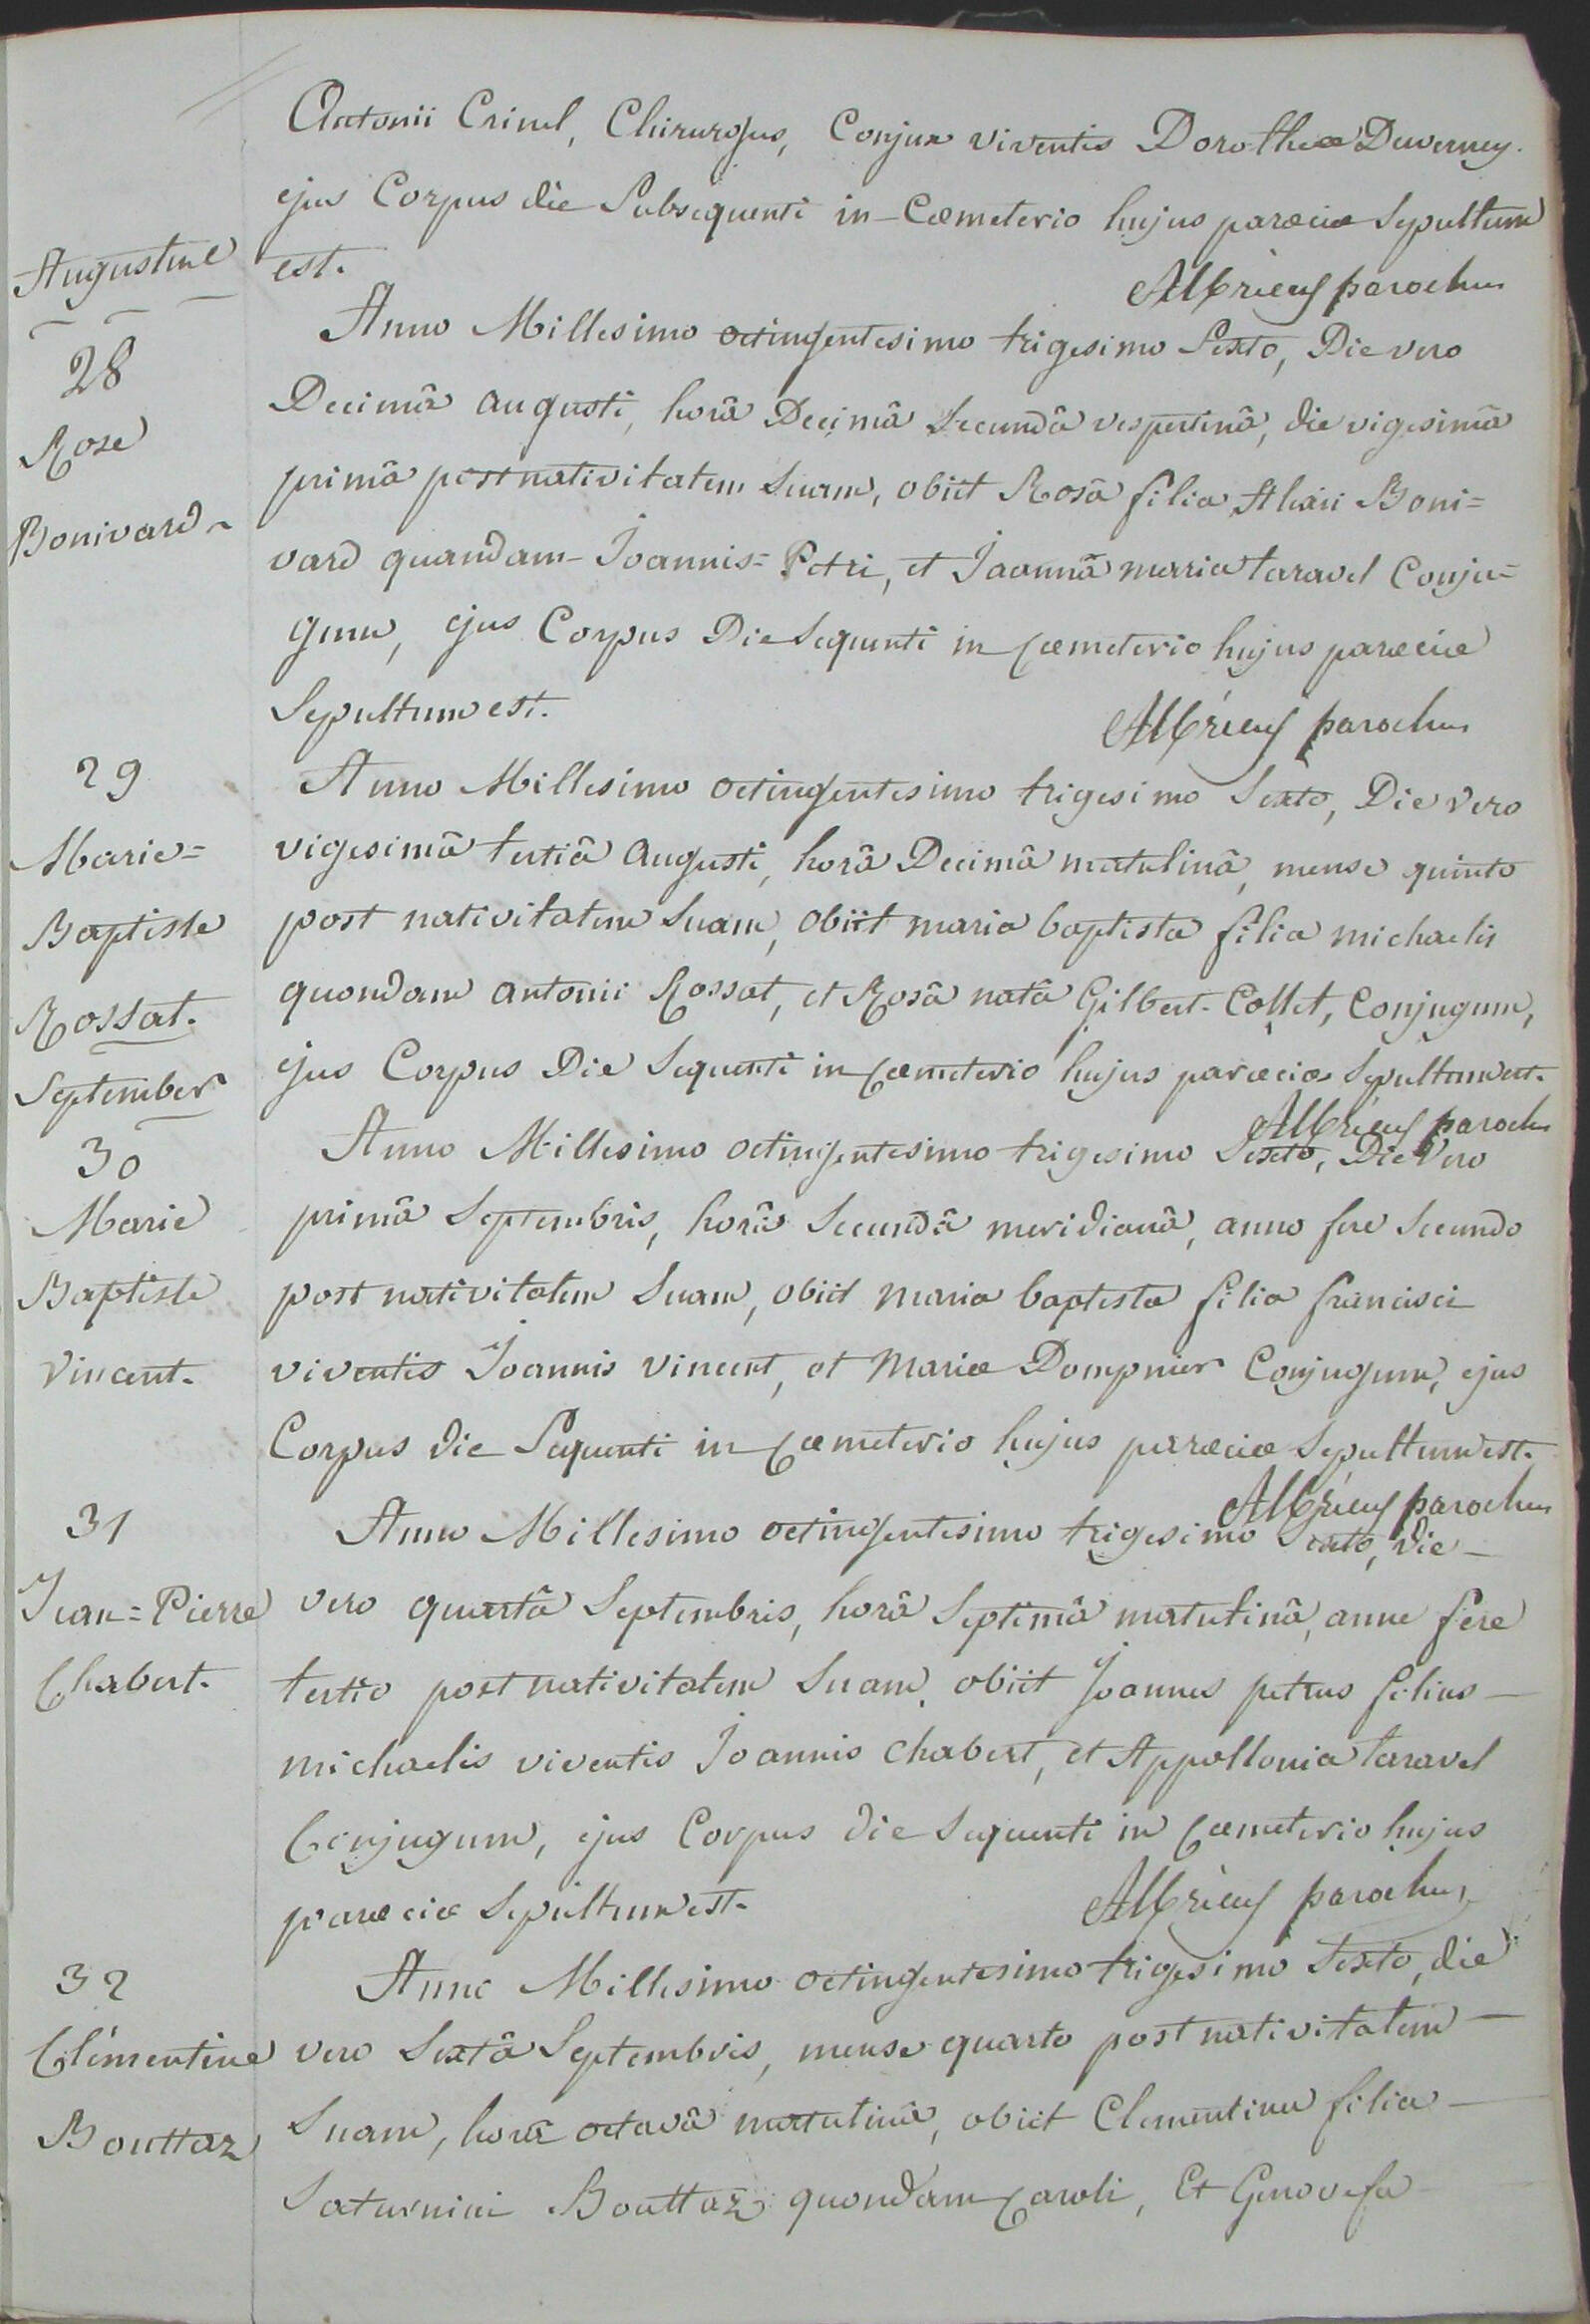 Antonii Crinel, Chirurgus, Conjux viventis Dorotheæ Duverney.
ejus Corpus die Subsequenti in Cœmeterio hujus parœciæ Sepultum
Augustine
est.
Albrieux parochus
28
Rose
Bonivard
Anno Millesimo octingentesimo trigesimo Sexto, Die vero
Decimâ augusti, horâ Decimâ Secundâ vespertinâ, die vigesimâ
primâ post nativitatem Suam, obiit Rosâ filia Boni=
vard quandam Joannis=Petri, et Joannâ maria taravel Conju=
gum, ejus Corpus Die Sequenti in Cœmeterio hujus parœciæ
Sepultum est.
Albrieux parochus
29
Marie=
Baptiste
Rossat.
Anno Millesimo octingentesimo trigesimo Sexto, Die vero
vigesimâ tertiâ augusti, horâ Decimâ matutinâ, mense quinto
post nativitatem Suam, obiit maria baptista filia michaelis
quondam antonii Rossat, et Rosâ natâ Gilbert-Collet, Conjugum,
ejus Corpus Die Sequenti in Cœmeterio hujus parœcia Sepultum est.
Albrieux paroch
September
30
Marie
Baptiste
Vincent.
Anno Millesimo octingentesimo trigesimo Sexto, Die Vero
primâ Septembris, horâ Secundâ meridianâ, anno fere Secundo
post nativitatem Suam, obiit maria baptista filia francisci
viventis Joannis vincent, et Mariæ Dompnier Conjugum, ejus
Corpus die Sequenti in Cœmeterio hujus parœciæ Sepultum est.
Albrieux parochus
31
Jean=Pierre
Chabert.
Anno Millesimo octingentesimo trigesimo Sexto, die
vero quartâ Septembris, horâ Septimâ matutinâ, anno fere
tertio post nativitatem Suam, obiit Joannes petrus filius
michaelis viventis Joannis Chabert, et Appollonia taravel
Conjugum, ejus Corpus die Sequenti in Cœmeterio hujus
parœciæ Sepultum est.
Albrieux parochus
32
Clémentine
Bouttaz
Anno Millesimo octingentesimo trigesimo Sexto, die
vero Sextâ Septembris, mense quarto post nativitatem
Suam, horâ octavâ matutinâ, obiit Clementina filia
Saturnini Bouttaz quondam Caroli, Et Genovefa